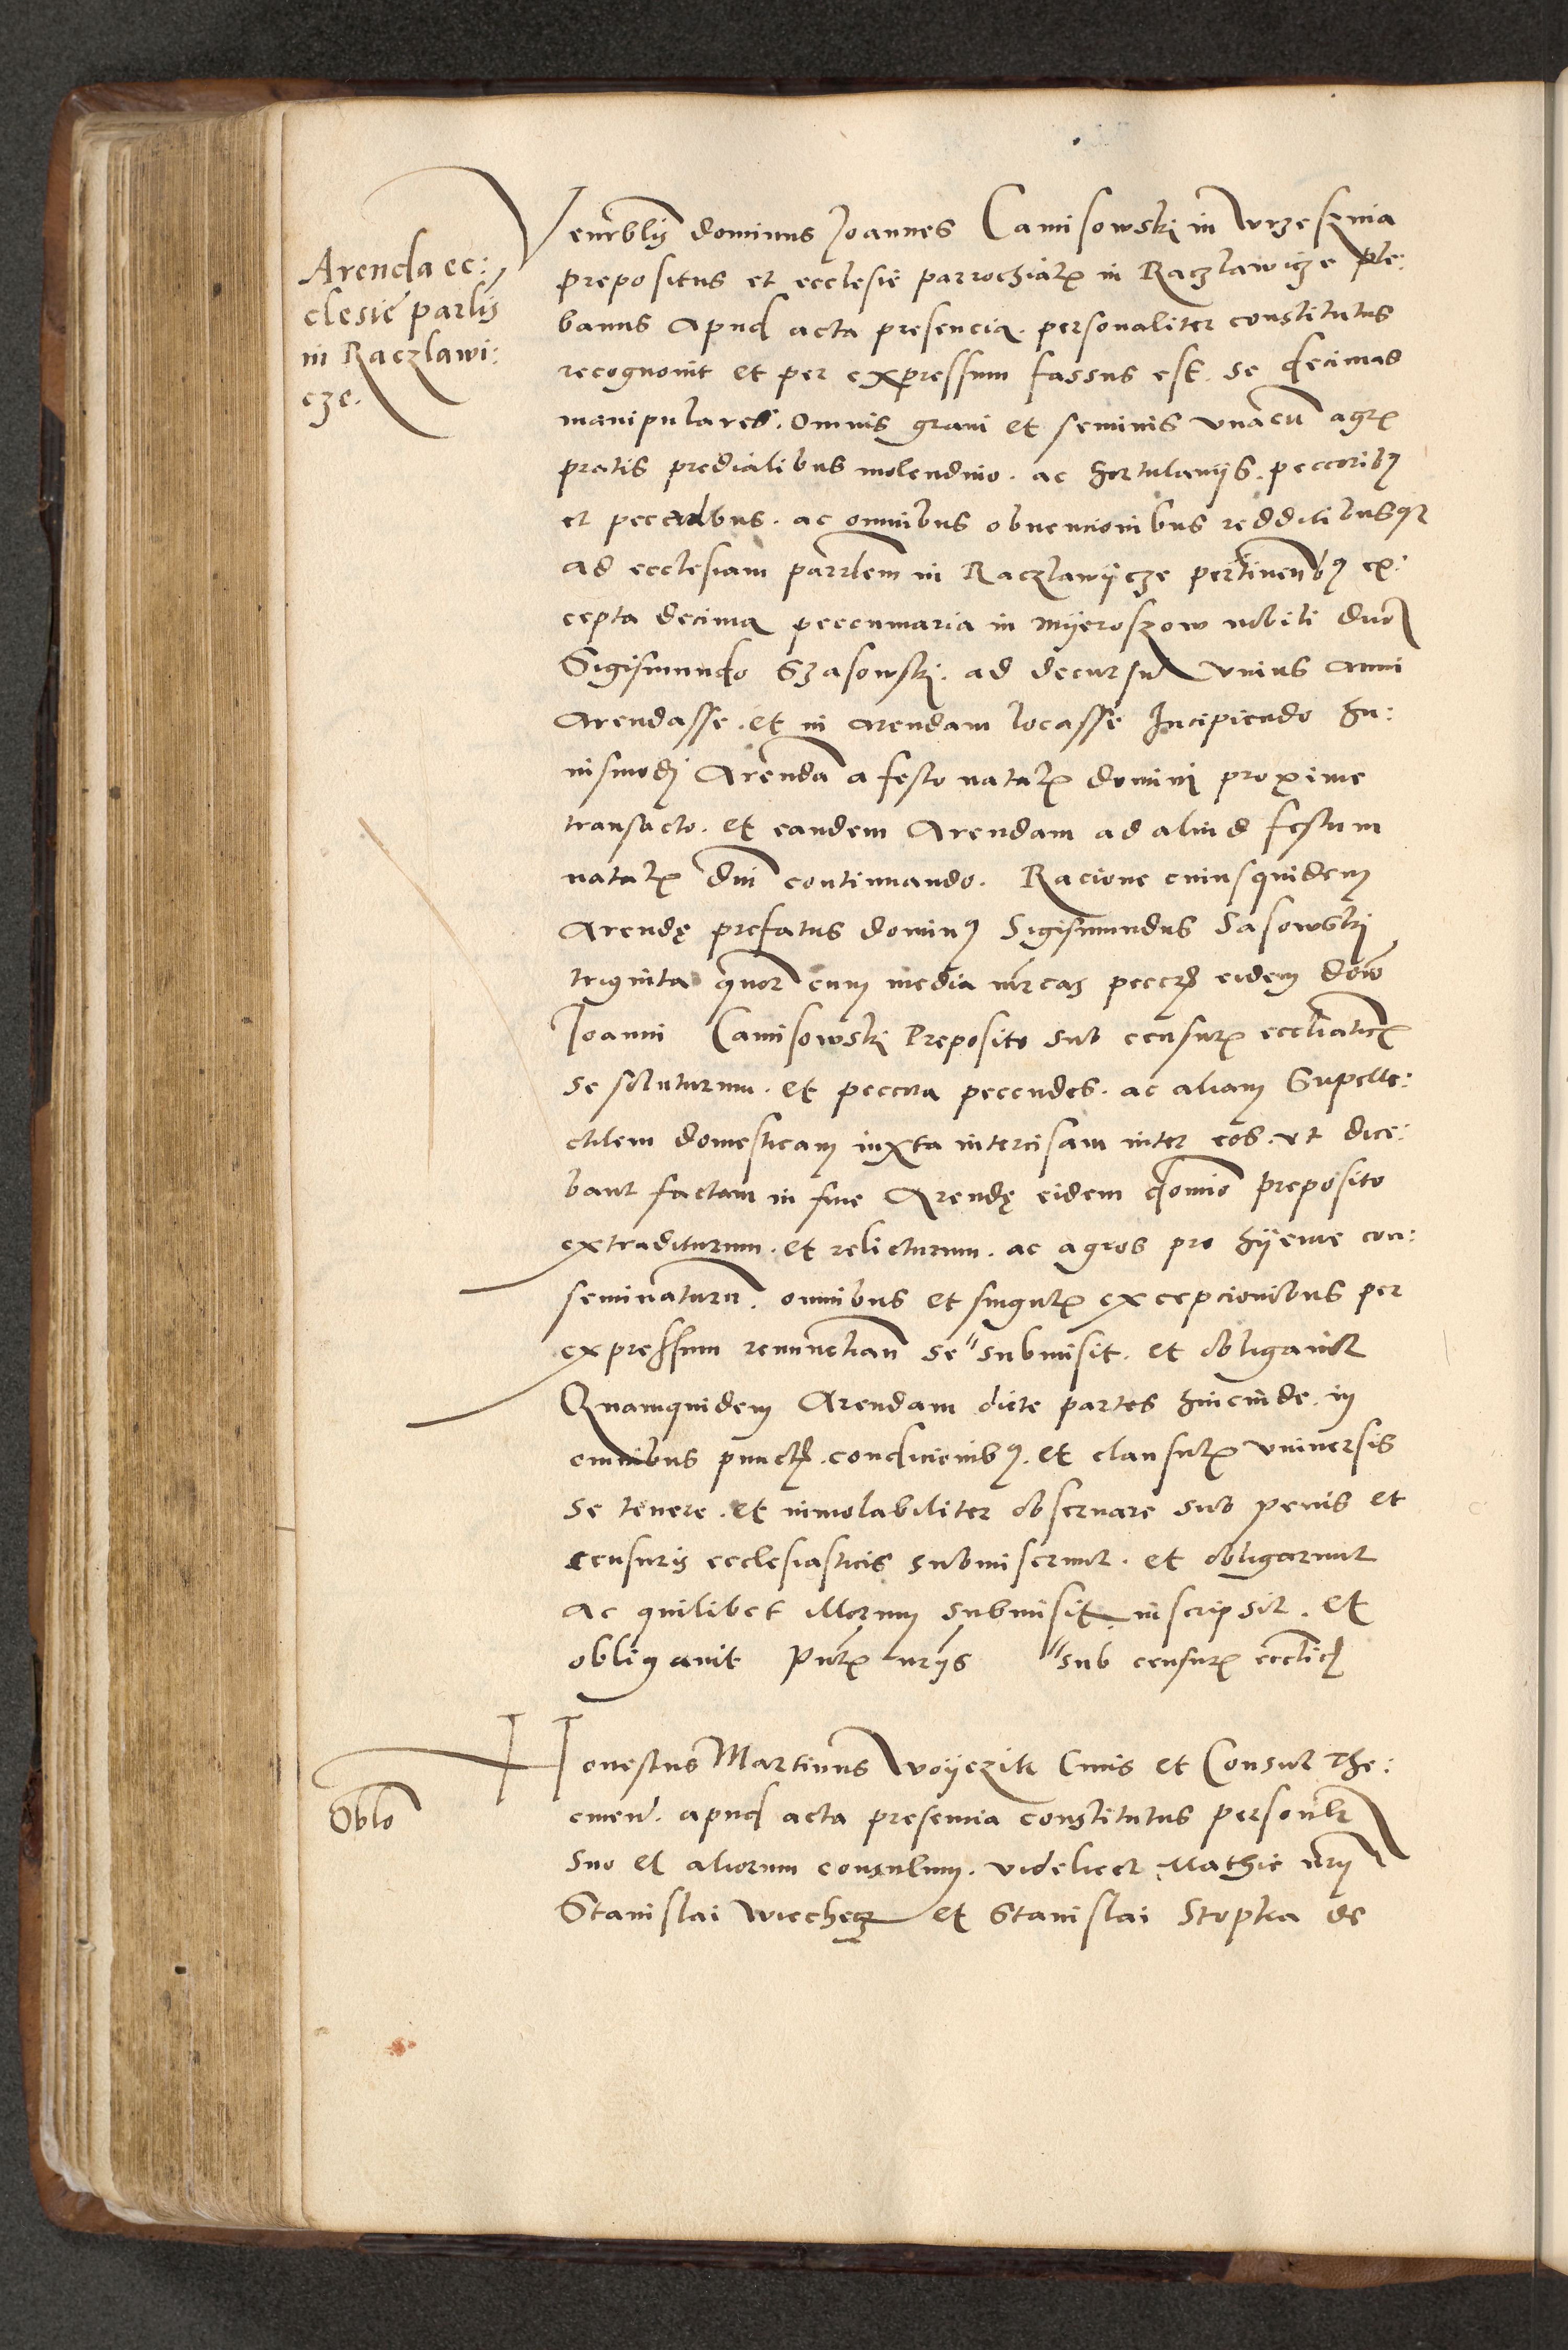 Arenda ec:
clesie parlis
in Raczlawi:
cze.
Venrblis dominus Joannes Camisowski in Wrzesznia
prepositus et ecclesie parrochialis in Raczlawicze ple:
banus apud acta presencia personaliter constitutus
recognovit et per expressum fassus est. se decimas
manipulares. omnis grani et seminis unacu agris
pratis predialibus molendino. ac hortulanijs. peccoribus
et pecudibus. ac omnibus obvencionibus redditibusque
ad ecclesiam parrlem in Raczlawijcze pertinentibus ex:
cepta decima peccuniaria in Mijeroszow nobili duo
Sigismundo Szasowski. ad decursu unius anni
Arendasse. et in arendam locasse Incipiendo hu:
iusmodi Arenda a festo natalis domini proxime
transacto. et eandem Arendam ad aliud festum
natalis dni continuando. Racione cuiusquidem
Arendę prefatus dominus Sigismundus Sasowski
triginta quor cum media mrcas peccis eidem dno
Joanni Camisowski Preposito sub censuris eccliaticis
se soluturum. et peccora peccudes. ac aliam Supelle:
ctilem domesticam iuxta intercisam inter eos. ut dice:
bant factam in fine Arendę eidem domio preposito
extraditurum. et relicturum. ac agros pro hijeme con:
seminaturu. omnibus et singulis excepcionibus per
expressum renunctian se "submisit. et obligavit
Quamquidem Arendam dicte partes hincinde. in
omnibus punctis. condicionibus. et clausulis universis
se tenere. et inviolabiliter observare sub penis et
censuris ecclesiasticis submiserunt. et obligarunt
Ac quilibet illorum submisit inscripsit. et
obligavit Pntis nrijs "sub censuris ecclicis
Honestus Martinus Woijczik Civis et Consul The:
cinen. apud acta presencia constitutus personlr
suo et aliorum consulum. videlicet Mathie
Stanislai Wiechecz et Stanislai Stopka de
Oblo